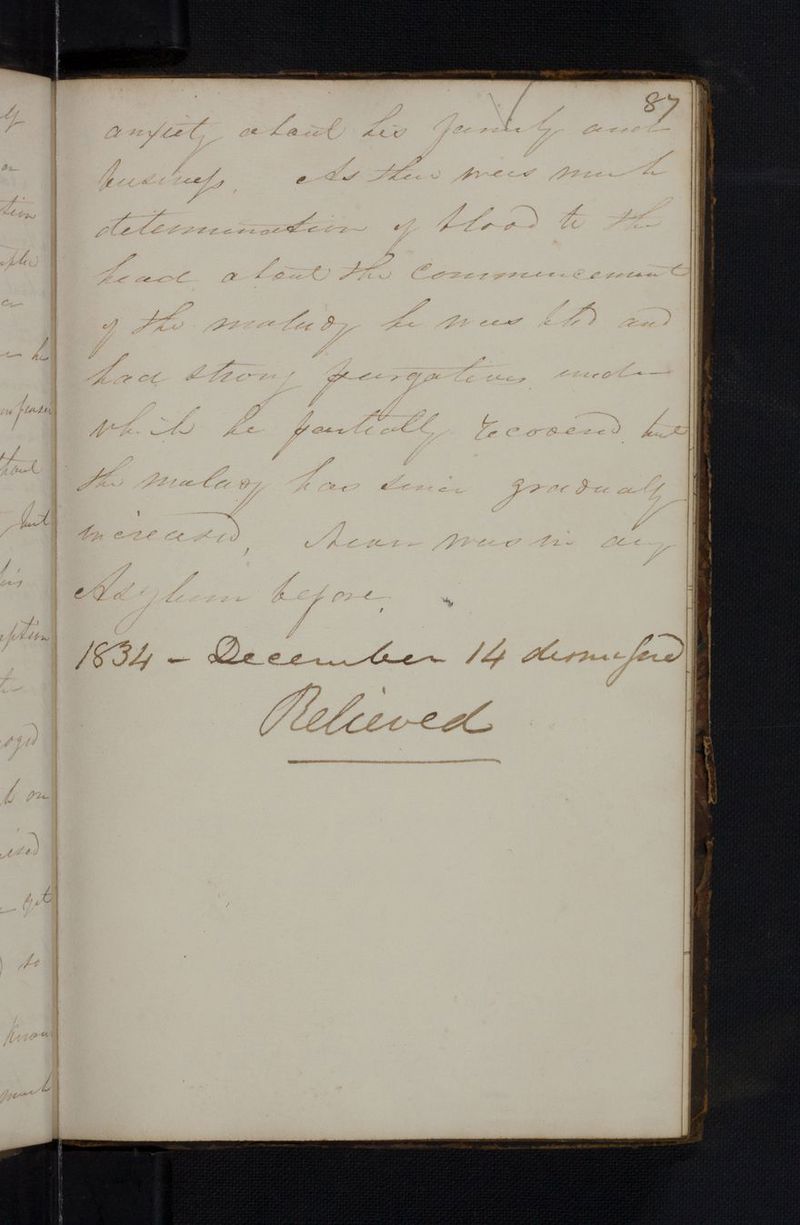 87
anxiety about his family and
business. As there was much
determination of blood to the
head about the commencement
of the malady he was bled and
had strong purgatives under
which he partially recovered but
the malady has since gradually
increased, Never was in any
Asylum before.
1834 - December 14 dismissed
Relieved